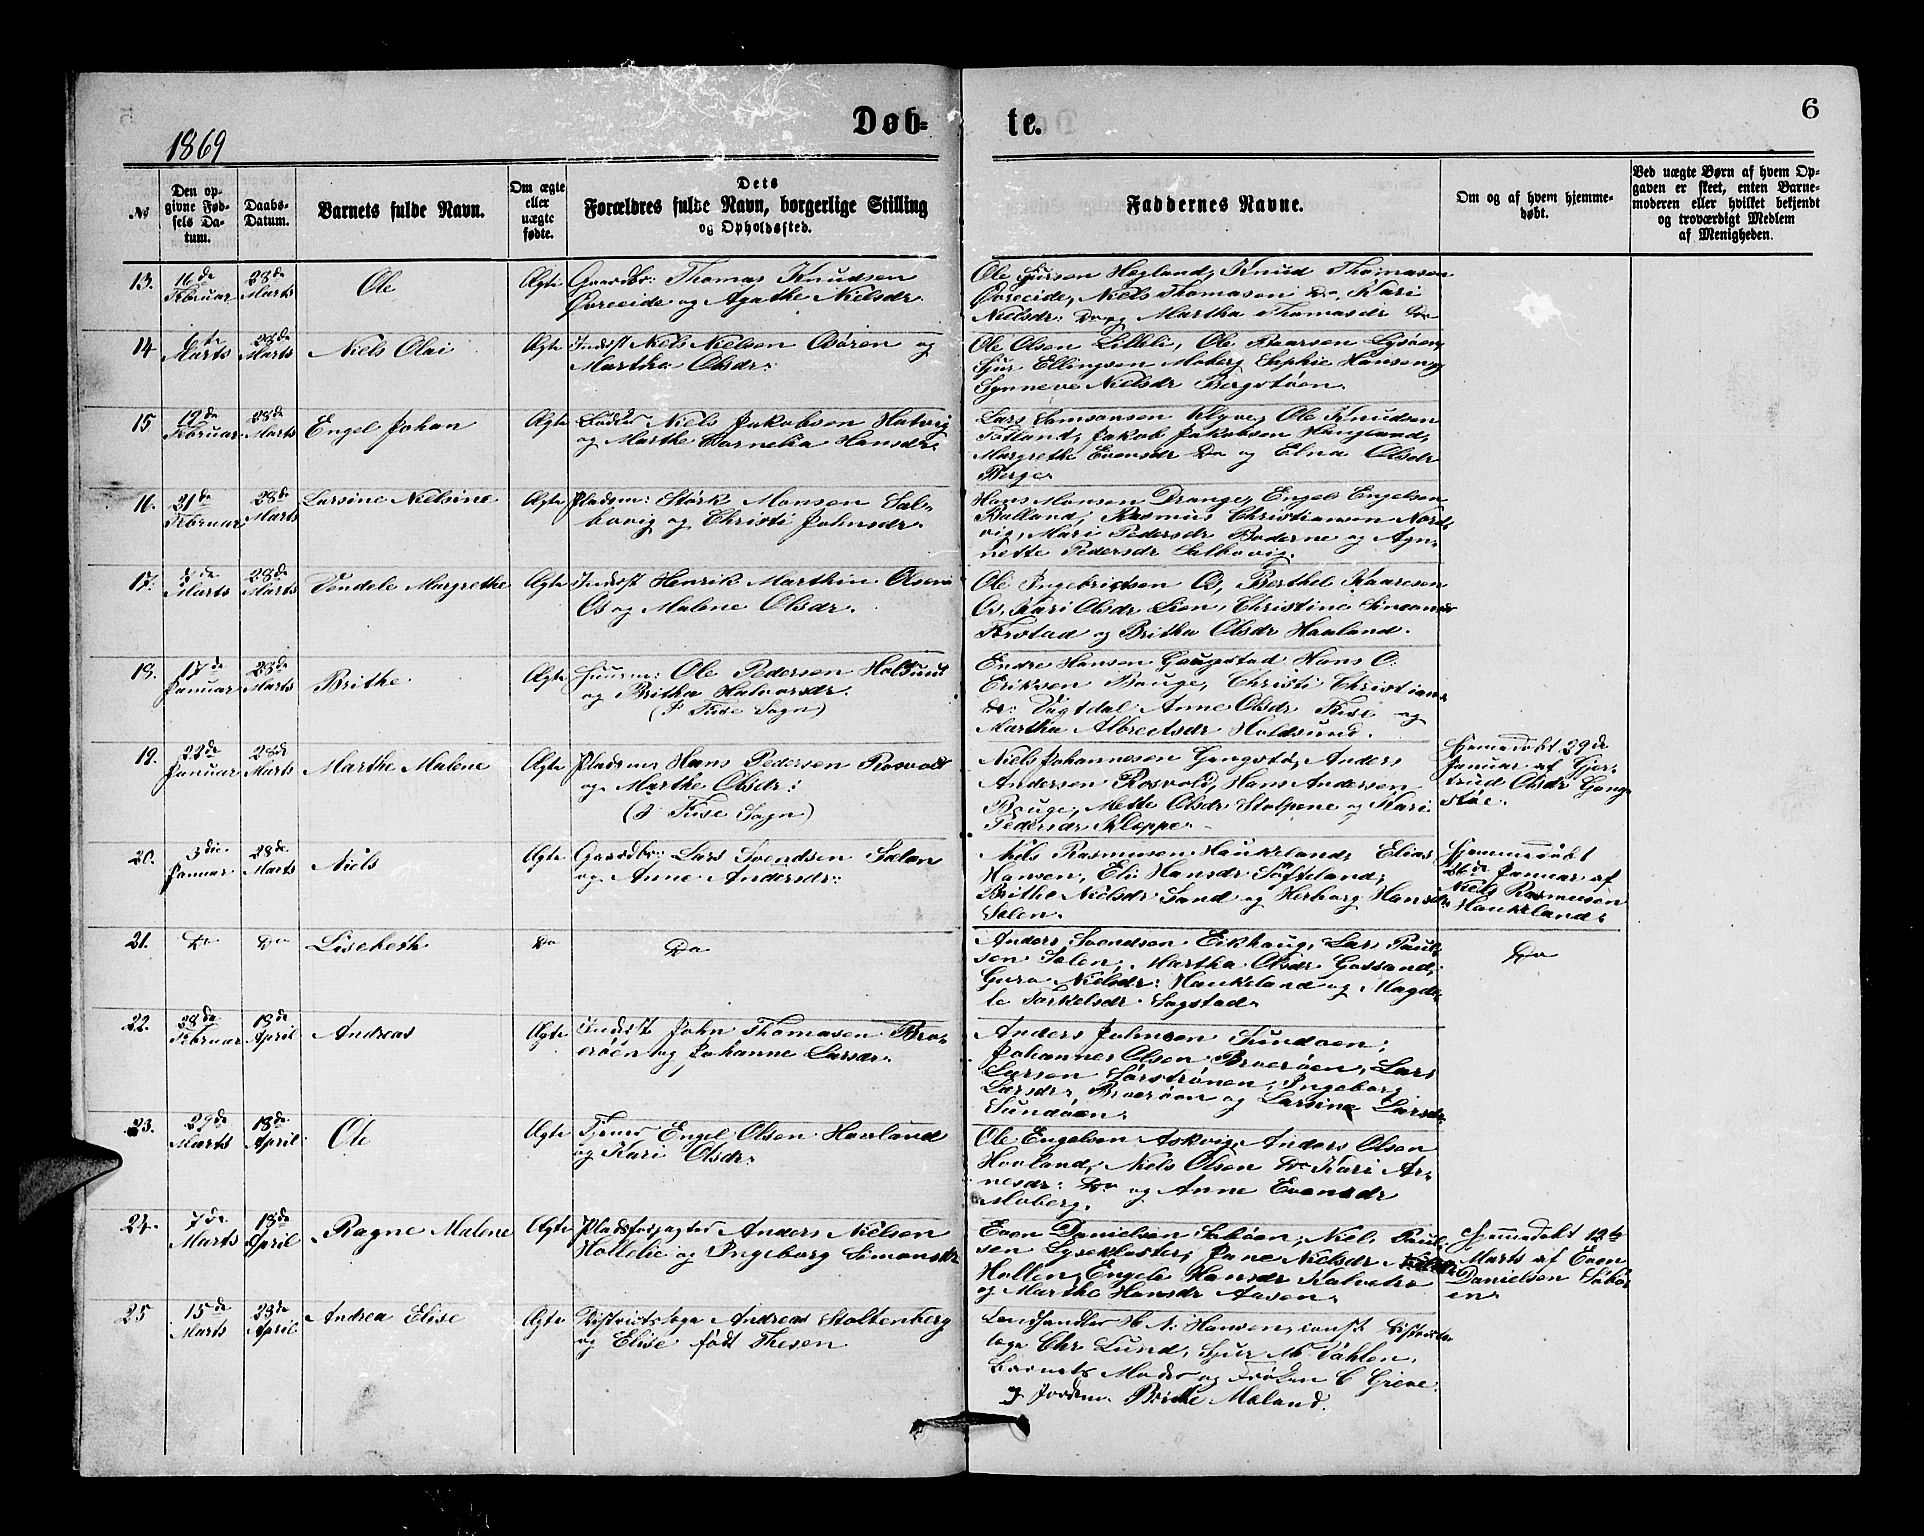 Døb-
te.
6
1869
№
Den op-
givne Fød-
sels Da-
tum.
Daabs-
Datum.
Barnets fulde Navn.
Om ægte
eller
uægte
fødte.
Dets
Forældres fulde Navn, borgerlige Stilling
og Opholdssted.
Faddernes Navne.
Om og af hvem hjemme-
døbt.
Ved uægte Børn af hvem Op-
gaven er skeet, enten Barne-
moderen eller hvilket bekjendt
og troværdigt Medlem
af Menigheden.
13. 16de Februar 28de Marts Ole Ægte
Gaardbr: Thomas Knudsen
Øvreeide og Agathe Nielsdr.
Ole Hegland, Knud Thomasen
Øvreeide, Niels Thomasen Do, Kari
Nielsdr: Do og Martha Thomasdr Do
14 6te Marts 28de Marts Niels Olai Ægte
Inderst Niels Nielsen Osøren og
Martha Olsdr:
Ole Olsen Lilleli, Ole Baarsen Lysøen,
Sjur Ellingsen Moberg Sophie Hansen og
Synneve Nielsdr Bergstøen.
15 12de Februar 28de Marts Engel Johan Ægte
Niels Jakobsen Hatvig
og Marthe Cornelia Hansdr.
Lars Samsonsen Klyve, Ole Knudsen
Tøtland, Jakob Jakobsen Haugland,
Margrethe Evensdr Do og Elna Olsdr
Berge.
16. 21de Februar 28de Marts Larsine Nielsine Ægte
Pladsm: Størk Monsen Sal-
bovig og Christi Johnsdr.
Hans Monsen Drange, Engel Engelsen
Balland, Rasmus Christiansen Nord-
vig, Mari Pedersdr Boderne og Agn-
nette Pedersdr Salbovig.
17. 7de Marts 28de Marts Vendele Margrethe Ægte
Inderst Henrik Marthin Olsen
Os og Malene Olsdr.
Ole Ingebrigtsen Os, Berthel Kaaresen
Os, Kari Olsdr Lien, Christine
og Britha Olsdr Haaland.
18. 17de Januar 28de Marts Brithe Ægte
Huusm: Ole Pedersen Holdsund
og Britha Halvorsdr.
(I Fuse Sogn)
Endre Hansen Gaugstad Hans O.
Eriksen Bouge, Christi Christians
dr: Vagtdal Anne Olsdr Fuse og
Martha Albrectsdr Holdsund.
19. 22de Januar 28de Marts Marthe Malene Ægte
Pladsmr Hans Pedersen Rosvold
og Marthe Olsdr:
(I Fuse Sogn)
Niels Johannesen Gangstø, Anders
Andersen Rosvold, Hans Andersen
Bouge, Mette Olsdr Stolpene og Kari
Pedersdr Kleppe.
Hjemmedøbt 29de
Januar af Gjer-
trud Olsdr Gang-
støe.
20. 3die Januar 28de Marts Niels Ægte
Gaardbr: Lars Svendsen Salen
og Anne Andersdr:
Niels Rasmusen Haukeland, Elias
Hansen, Eli Hansdr Søfteland,
Brithe Nielsdr Sand og Herborg Hansdr.
Salen.
Hjemmedøbt
26de Januar af
Niels Rasmusen
Haukeland.
21. Do Do Lisebeth Do Do
Anders Svendsen Eikhaug, Lars Paul-
sen Salen, Martha Olsdr Gaasand,
Guro Nielsdr: Haukeland og Magde-
le Torkelsdr Sagstad.
Do
22. 28de Februar 18de April Andreas Ægte
Inderst John Thomasen Bro-
erøen og Johanne Larsdr.
Anders Johnsen Sundøen,
Johannes Olsen Broerøen, Lars
Larsen Sørstrønen, Ingeborg
Larsdr, Broerøen og Larsine Larsdr
Sundøen.
23. 29de Marts 18de April Ole Ægte
Tjener Engel Olsen Hovland
og Kari Olsdr.
Ole Engelsen Askvig, Anders Olsen
Hovland, Niels Olsen Do Kari Ar-
nesdr: Do og Anne Evensdr
Moberg.
24. 7de Marts 18de April Ragne Malene Ægte
Pladsforpagter Anders Nielsen
Hollelie og Ingeborg Simonsdr
Even Danielsen Søbøen, Niels Paul-
sen Lysekloster, Jane Nielsdr
Hollen, Engele Hansdr
og Martha Hansdr Aasen.
Hjemmedøbt 12te
Marts af Even
Danielsen Søbø-
en.
25 15de Marts 23de April Andrea Elise Ægte
Distriktslæge Andreas Stoltenberg
og Elise født Thesen
Landhandler H. N: Hansen, const. Distrikts-
læge Chr. Lund, Sjur M. Dahlen,
Barnets Moder og Frøken C Grieve
og Jordem. Brithe Mæland.